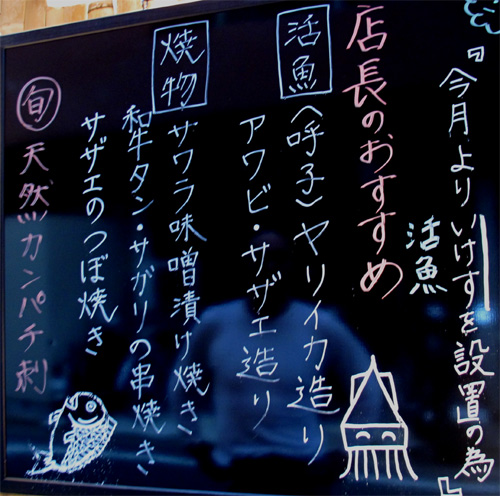 『今月よりいけすを設置の為』
活魚
店長のおすすめ
活魚 (呼子)ヤリイカ造り
アワビ・サザエ造り
焼物 サワラ味噌漬け焼き
和牛タン・サガリの串焼き
サザエのつぼ焼き
旬 天然カンパチ刺